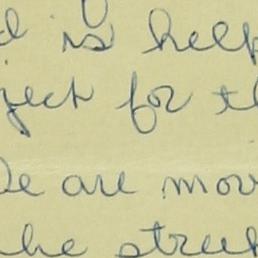 d is help
ject for th
We are mov
the struc